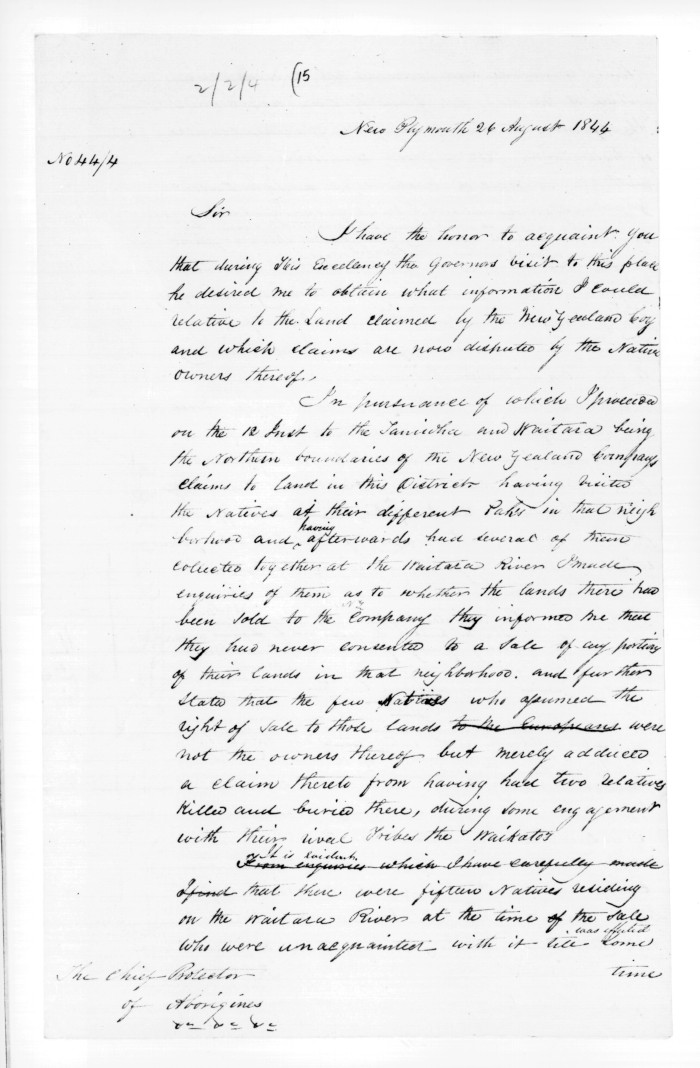 2/2/4 (15
New Plymouth 26 August 1844
No 44/4
Sir
I have the honor to acquaint you
that during His Excelancy the Governors visit to this place
he desired me to obtain what information I could
relative to the Land claimed by the New Zealand Coy
and which claims are now disputed by the Native
owners thereof.
In pursuance of which I proceeded
on the 12 Inst to the Taniwha and Waitara being
the Northern boundaries of the New Zealand Companys
claims to land in this District having visited
the Natives at their different Pahs in that neigh
borhood and having afterwards had several of them
colected together at the Waitara River I made
enquiries of them as to whether the lands there had
been sold to the N.Z. Company they informed me that
they had never consented to a sale of any portion
of their lands in that neighborhood. and further
state that the few Natives who assumed the
right of sale to those lands to the Europeans were
not the owners thereof but merely adduced
a claim thereto from having had two relatives
killed and buried there, during some engagement
with their rival Tribes the Waikatos
It is evident
From enquiries which I have carefully made
I find that there were fifteen Natives residing
on the Waitara River at the time of the Sale
who were unacquainted with it till some
was effected
time
The Chief Protector
of Aborigines